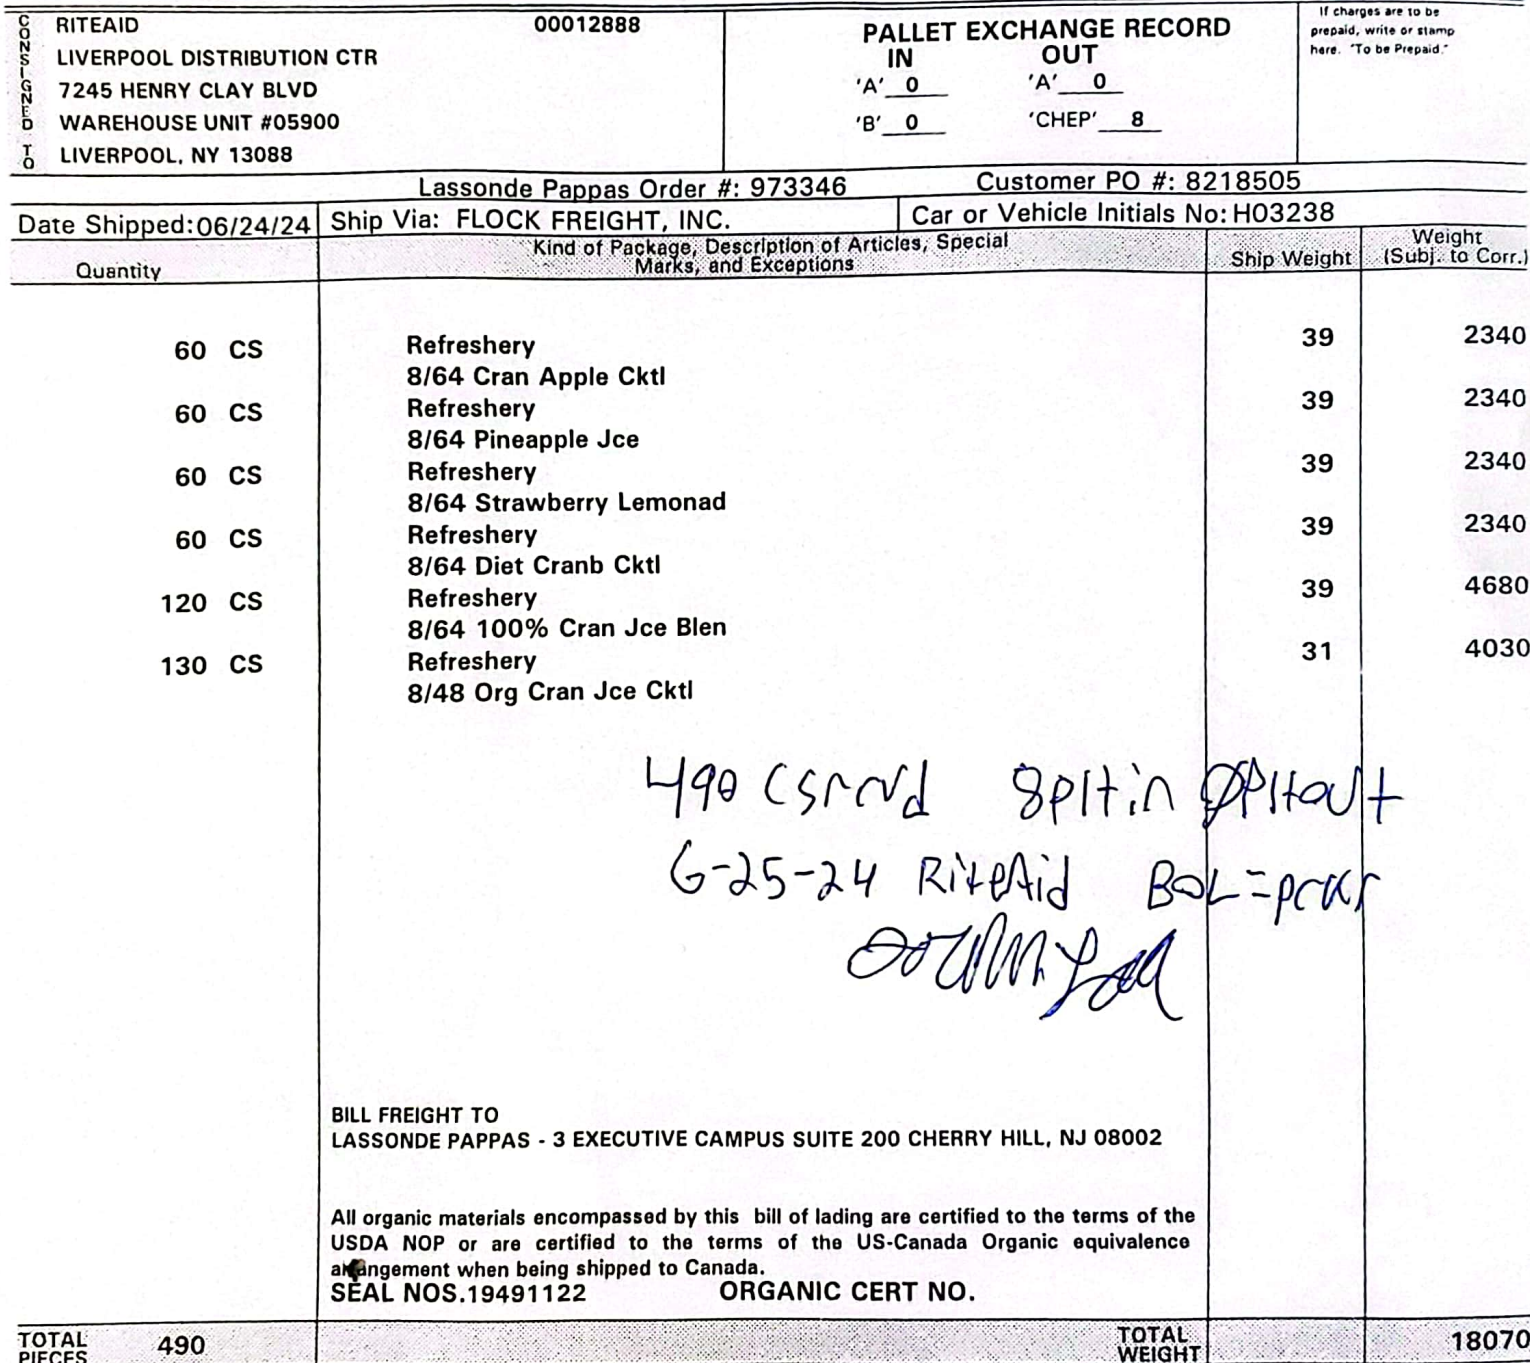 CONSIGNED TO
RITEAID 00012888
LIVERPOOL DISTRIBUTION CTR
7245 HENRY CLAY BLVD
WAREHOUSE UNIT #05900
LIVERPOOL, NY 13088
PALLET EXCHANGE RECORD
IN OUT
'A' 0 'A' 0
'B' 0 'CHEP' 8
If charges are to be
prepaid, write or stamp
here. "To be Prepaid."
Lassonde Pappas Order #: 973346 Customer PO #: 8218505
Date Shipped: 06/24/24 Ship Via: FLOCK FREIGHT, INC. Car or Vehicle Initials No: H03238
Quantity Kind of Package, Description of Articles, Special Marks, and Exceptions Ship Weight Weight (Subj. to Corr.)
60 CS Refreshery 39 2340
8/64 Cran Apple Cktl
60 CS Refreshery 39 2340
8/64 Pineapple Jce
60 CS Refreshery 39 2340
8/64 Strawberry Lemonad
60 CS Refreshery 39 2340
8/64 Diet Cranb Cktl
120 CS Refreshery 39 4680
8/64 100% Cran Jce Blen
130 CS Refreshery 31 4030
8/48 Org Cran Jce Cktl
490 CS rcvd 8 plt in 0 plt out
6-25-24 RiteAid BOL =
BILL FREIGHT TO
LASSONDE PAPPAS - 3 EXECUTIVE CAMPUS SUITE 200 CHERRY HILL, NJ 08002
All organic materials encompassed by this bill of lading are certified to the terms of the
USDA NOP or are certified to the terms of the US-Canada Organic equivalence
arrangement when being shipped to Canada.
SEAL NOS.19491122 ORGANIC CERT NO.
TOTAL PIECES 490 TOTAL WEIGHT 18070